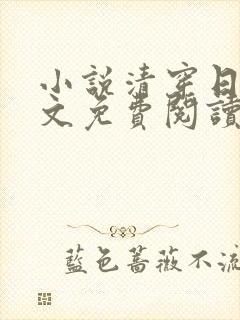 小説清穿日
文免費閱讀
藍色薔薇不流